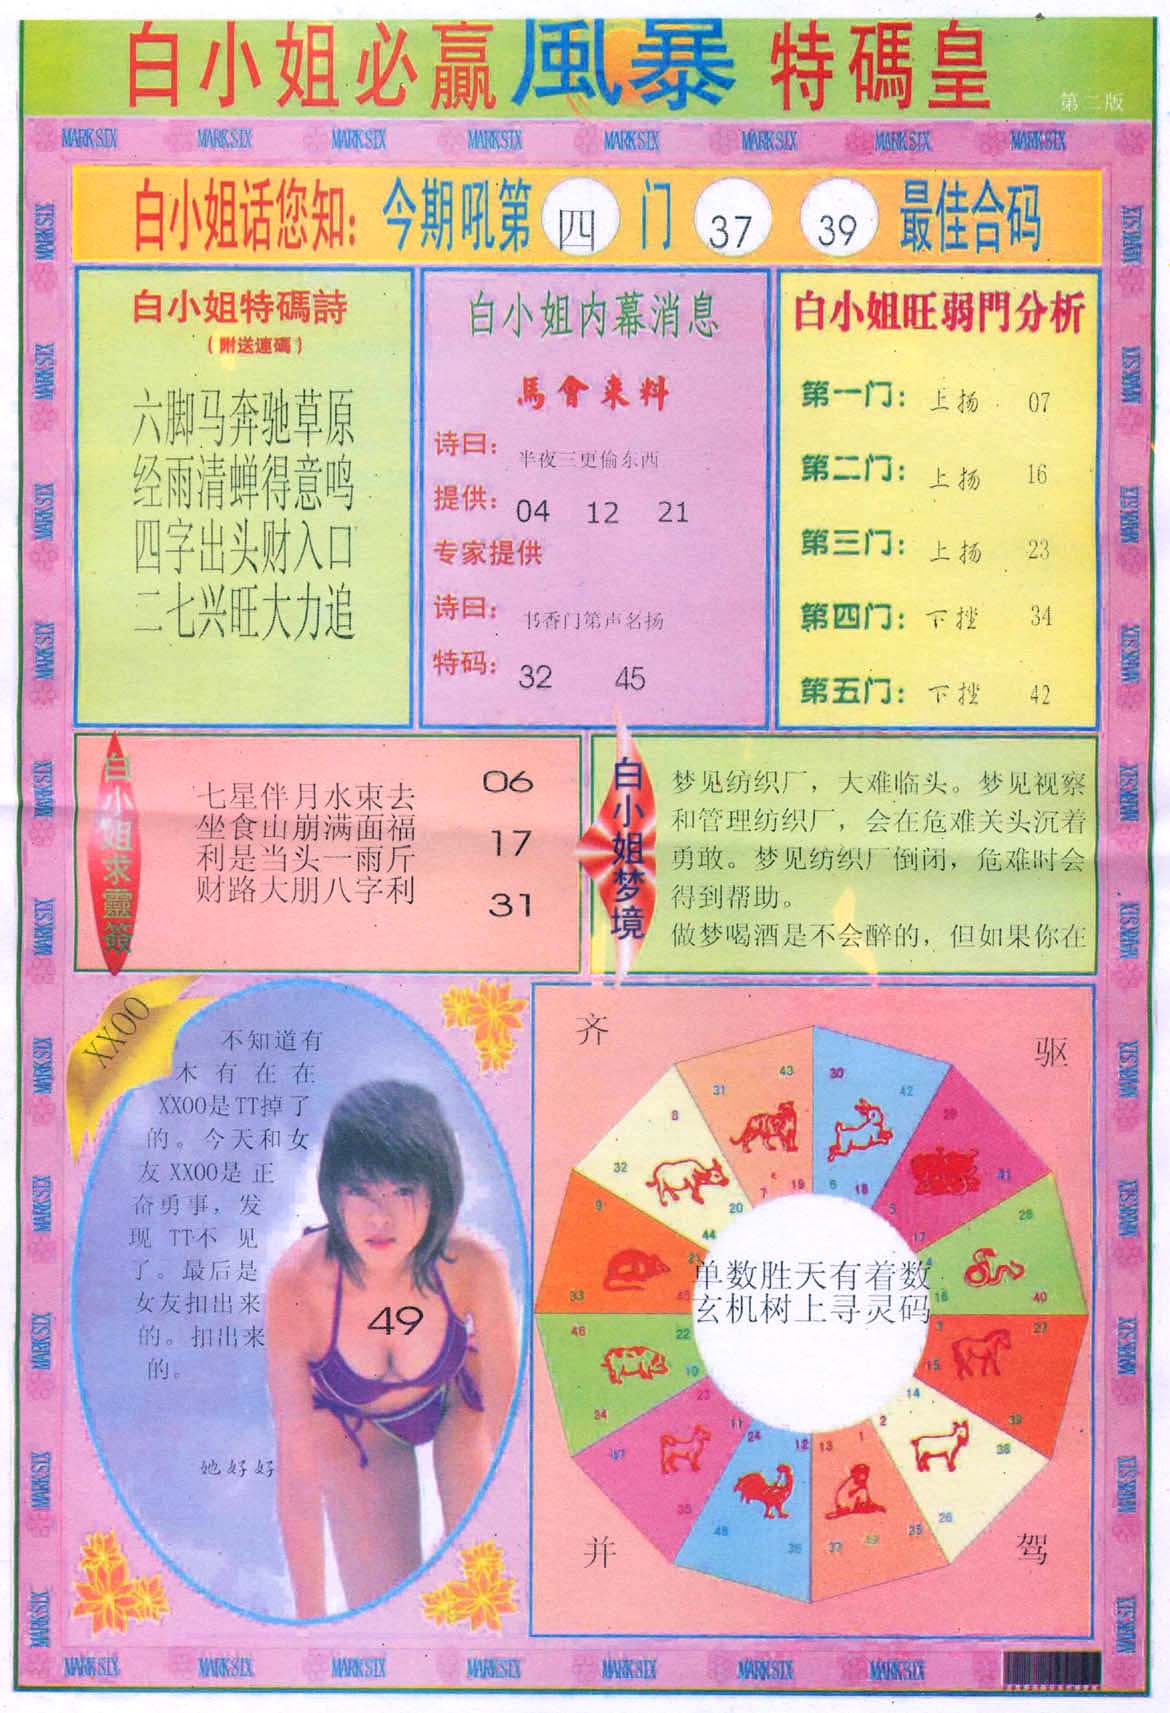 白小姐必贏風暴特碼皇
第二版
MARK SIX MARK SIX MARK SIX MARK SIX MARK SIX MARK SIX MARK SIX MARK SIX
白小姐话您知：今期吼第四门 37 39 最佳合码
白小姐特碼詩
（附送連碼）
六脚马奔驰草原
经雨清蝉得意鸣
四字出头财入口
二七兴旺大力追
白小姐内幕消息
馬會来料
诗曰：半夜三更偷东西
提供：04 12 21
专家提供
诗曰：书香门第声名扬
特码：32 45
白小姐旺弱門分析
第一门：上扬 07
第二门：上扬 16
第三门：上扬 23
第四门：下挫 34
第五门：下挫 42
白小姐求靈簽
七星伴月水東去
坐食山崩满面福
利是当头一雨斤
财路大朋八字利
06
17
31
白小姐梦境
梦见纺织厂，大难临头。梦见视察
和管理纺织厂，会在危难关头沉着
勇敢。梦见纺织厂倒闭，危难时会
得到帮助。
做梦喝酒是不会醉的，但如果你在
XXOO
不知道有
木有在在
XXOO是TT掉了
的。今天和女
友XXOO是正
奋勇事，发
现TT不见
了。最后是
女友扣出来
的。扣出来
的。
49
她好好
齐
驱
并
驾
单数胜天有着数
玄机树上寻灵码
31 43 7 19
30 42 6 18
29 41 5 17
28 40 4 16
27 39 3 15
14 2 38 26
13 1 37 49 25
24 12 48 36
23 11 47 35
46 22 10 34
9 21 33 45
8 20 32 44
MARK SIX MARK SIX MARK SIX MARK SIX MARK SIX MARK SIX MARK SIX